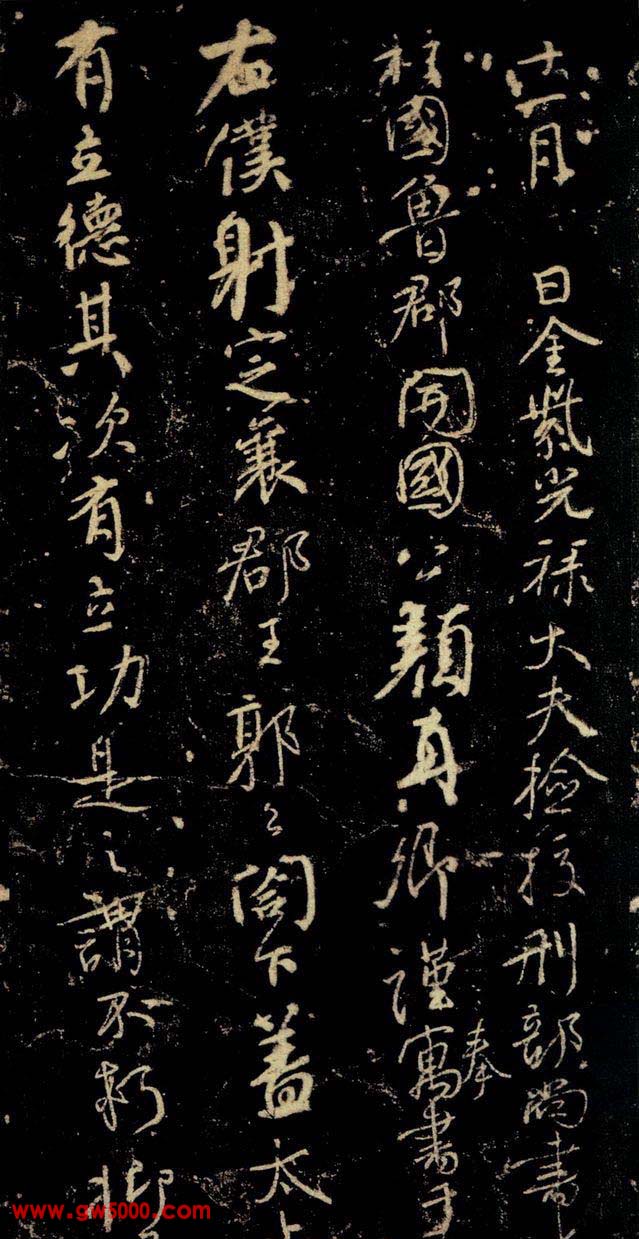 十一月日金紫光祿大夫檢校刑部尚書上
柱國魯郡開國公顏真卿謹奉寓書于
右僕射定襄郡王郭公閤下蓋太上
有立德其次有立功是之謂不朽抑
www.gw5000.com